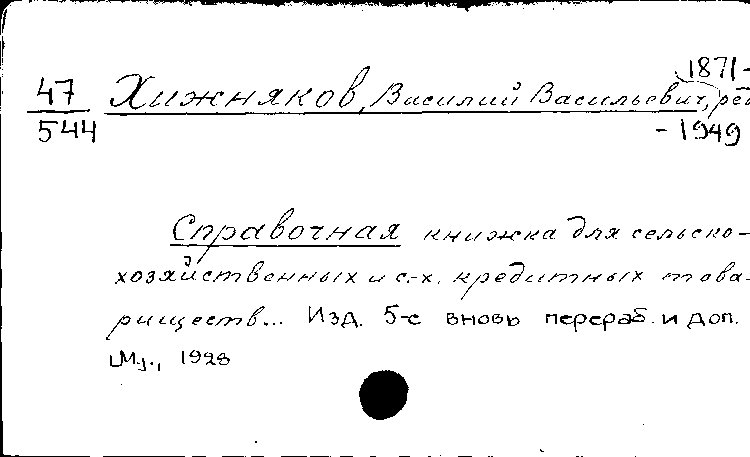 1871-
47 Хижняков, Василий Васильевич, ре
544 -1949
Справочная книжка для сельско-
хозяйственных и с.-х. кредитных това-
риществ... Изд. 5-е вновь перераб. и доп.
[М.], 1928